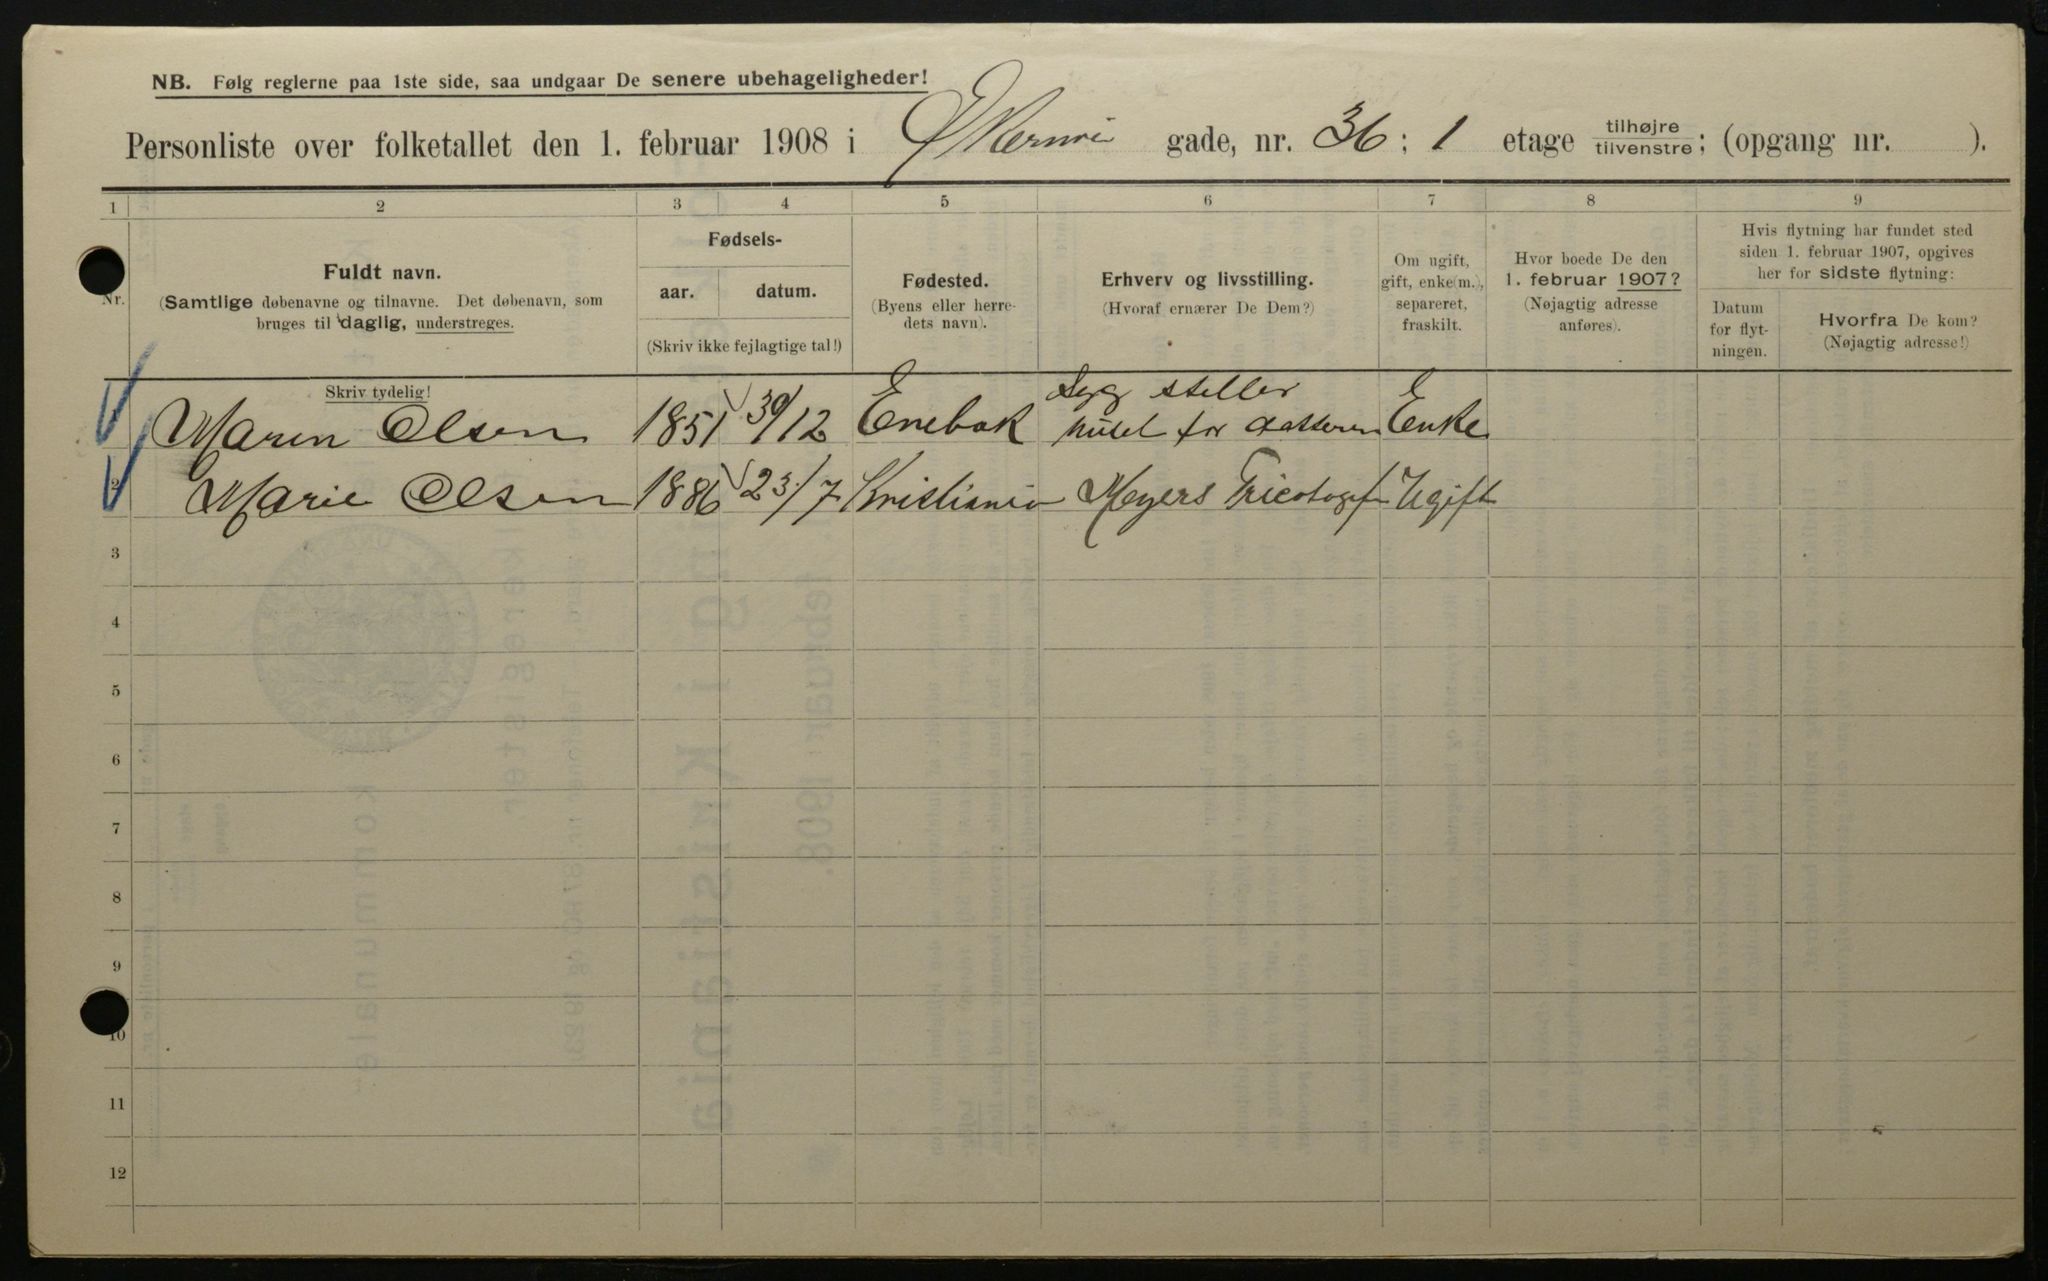 NB. Følg reglerne paa 1ste side, saa undgaar De senere ubehageligheder!
Personliste over folketallet den 1. februar 1908 i Økernvei gade, nr. 36 ; 1 etage tilhøjre tilvenstre ; (opgang nr. ).
1 2 3 4 5 6 7 8 9
Nr.
Fuldt navn.
(Samtlige døbenavne og tilnavne. Det døbenavn, som
bruges til daglig, understreges.
Skriv tydelig!
Fødsels-
aar. datum.
(Skriv ikke fejlagtige tal!)
Fødested.
(Byens eller herre-
dets navn).
Erhverv og livsstilling.
(Hvoraf ernærer De Dem?)
Om ugift,
gift, enke(m.),
separeret,
fraskilt.
Hvor boede De den
1. februar 1907?
(Nøjagtig adresse
anføres).
Hvis flytning har fundet sted
siden 1. februar 1907, opgives
her for sidste flytning:
Datum
for flyt-
ningen.
Hvorfra De kom?
(Nøjagtig adresse!)
Syg steller
1 Maren Olsen 1851 30/12 Enebak huset for datteren Enke
2 Marie Olsen 1886 23/7 Kristiania Meyers Tricotagef Ugift
3
4
5
6
7
8
9
10
11
12